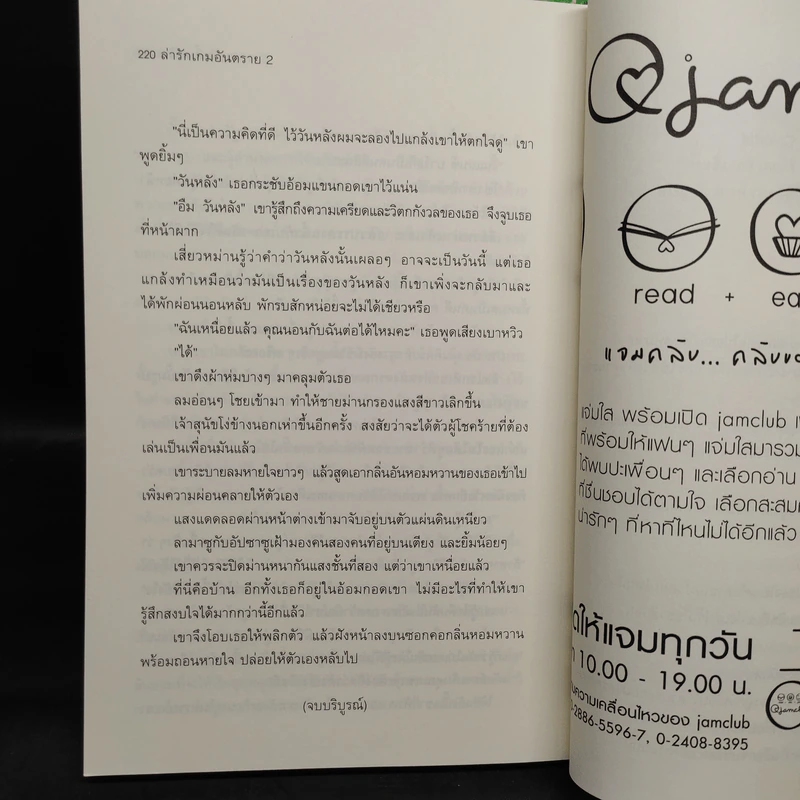 220 ล่ารักเกมอันตราย 2
"นี่เป็นความคิดที่ดี ไว้วันหลังผมจะลองไปแกล้งเขาให้ตกใจดู" เขา
พูดยิ้มๆ
"วันหลัง" เธอกระชับอ้อมแขนกอดเขาไว้แน่น
"อืม วันหลัง" เขารู้สึกถึงความเครียดและวิตกกังวลของเธอ จึงจูบเธอ
ที่หน้าผาก
เสี่ยวหม่านรู้ว่าคำว่าวันหลังนั้นเผลอๆ อาจจะเป็นวันนี้ แต่เธอ
แกล้งทำเหมือนว่ามันเป็นเรื่องของวันหลัง ก็เขาเพิ่งจะกลับมาและ
ได้พักผ่อนนอนหลับ พักรบสักหน่อยจะไม่ได้เชียวหรือ
"ฉันเหนื่อยแล้ว คุณนอนกับฉันต่อได้ไหมคะ" เธอพูดเสียงเบาหวิว
"ได้"
เขาดึงผ้าห่มบางๆ มาคลุมตัวเธอ
ลมอ่อนๆ โชยเข้ามา ทำให้ชายม่านกรองแสงสีขาวเลิกขึ้น
เจ้าสุนัขโง่ข้างนอกเห่าขึ้นอีกครั้ง สงสัยว่าจะได้ตัวผู้โชคร้ายที่ต้อง
เล่นเป็นเพื่อนมันแล้ว
เขาระบายลมหายใจยาวๆ แล้วสูดเอากลิ่นอันหอมหวานของเธอเข้าไป
เพิ่มความผ่อนคลายให้ตัวเอง
แสงแดดลอดผ่านหน้าต่างเข้ามาจับอยู่บนตัวแผ่นดินเหนียว
ลามาซูกับอัปซาซูเฝ้ามองคนสองคนที่อยู่บนเตียง และยิ้มน้อยๆ
เขาควรจะปิดม่านหนากันแสงชั้นที่สอง แต่ว่าเขาเหนื่อยแล้ว
ที่นี่คือบ้าน อีกทั้งเธอก็อยู่ในอ้อมกอดเขา ไม่มีอะไรที่ทำให้เขา
รู้สึกสงบใจได้มากกว่านี้อีกแล้ว
เขาจึงโอบเธอให้พลิกตัว แล้วฝังหน้าลงบนซอกคอกลิ่นหอมหวาน
พร้อมถอนหายใจ ปล่อยให้ตัวเองหลับไป
(จบบริบูรณ์)
@jam
read +
แจมคลับ...
แจ่มใส พร้อมเปิด jamclub
ที่พร้อมให้แฟนๆ แจ่มใสมารวม
ได้พบปะเพื่อนๆ และเลือกอ่าน
ที่ชื่นชอบได้ตามใจ เลือกสะสม
น่ารักๆ ที่หาที่ไหนไม่ได้อีกแล้ว
ให้แจมทุกวัน
10.00 - 19.00 น.
ความเคลื่อนไหวของ jamclub
-2886-5596-7, 0-2408-8395